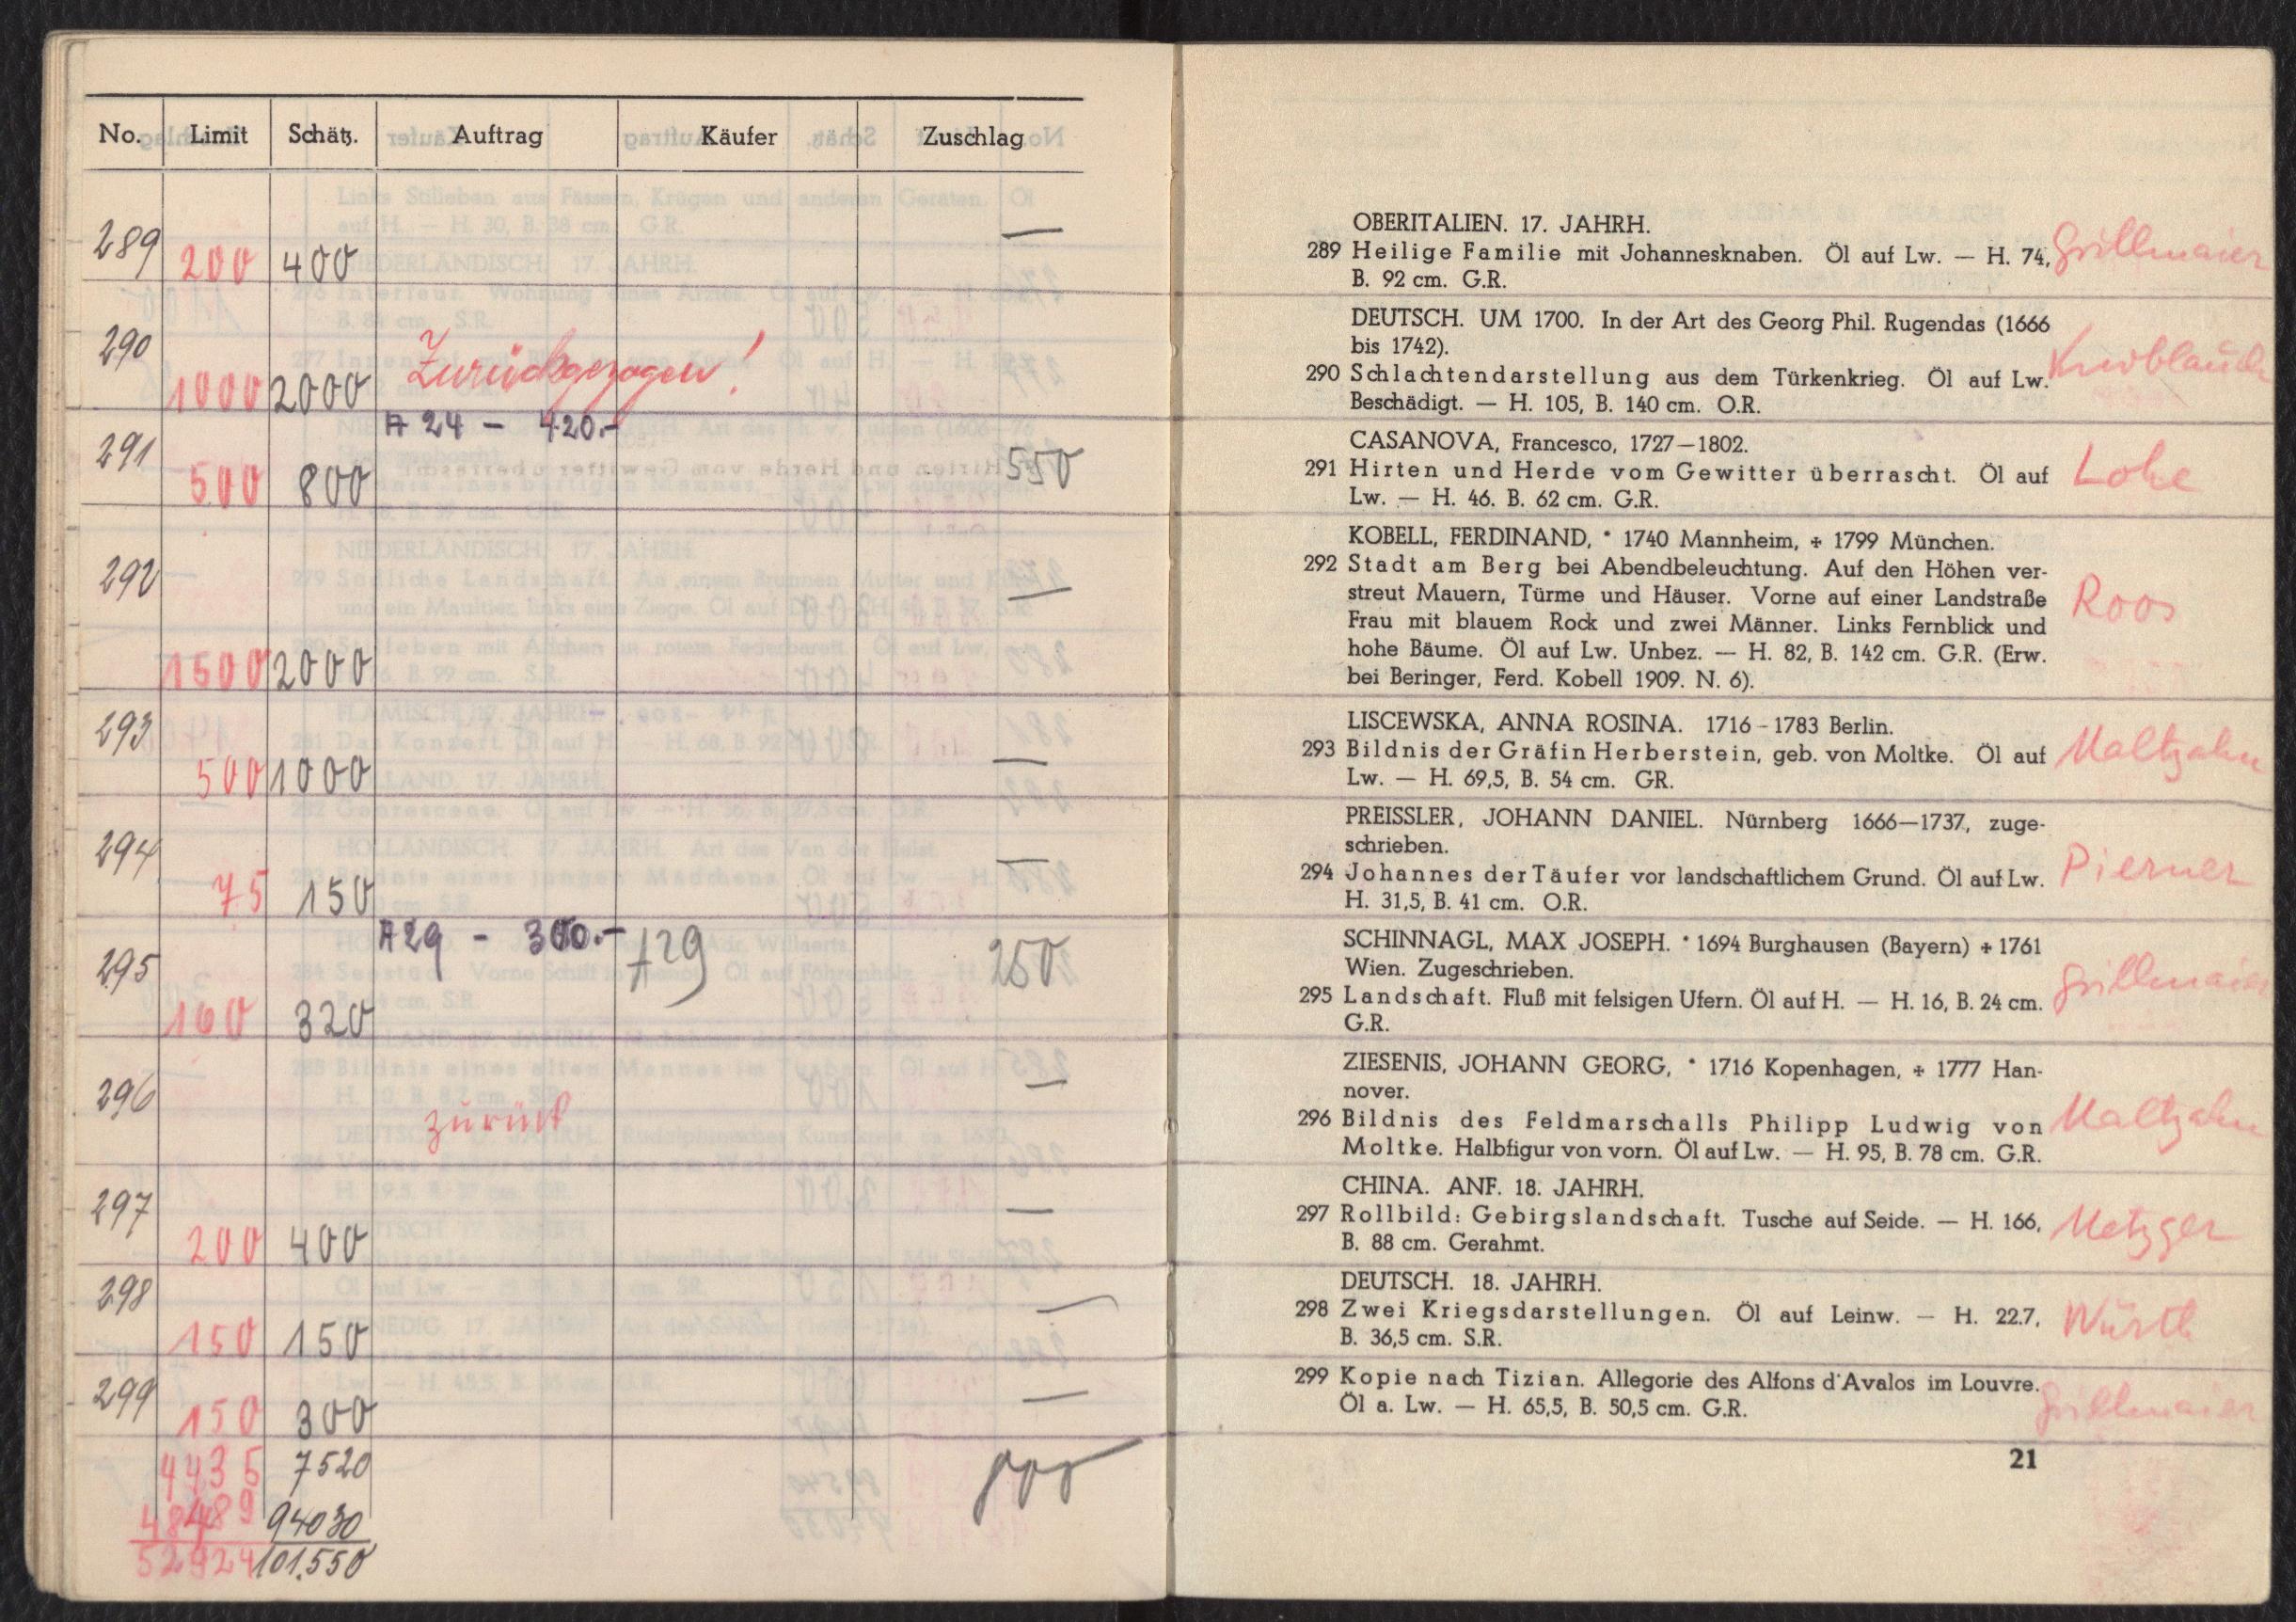 No. Limit Schätz. Auftrag Käufer Zuschlag
289 200 400 —
290 1000 2000 Zurückgezogen!
A 24 — 420.-
291 500 800 550
292 1500 2000 —
293 500 1000 —
294 75 150 —
A 29 - 300.-
295 160 320 A29 250
296 zurück —
297 200 400 —
298 150 150 —
299 150 300 —
4435 7520
48489 94030
52924 101.550
OBERITALIEN. 17. JAHRH.
289 Heilige Familie mit Johannesknaben. Öl auf Lw. — H. 74, Grillmaier
B. 92 cm. G.R.
DEUTSCH. UM 1700. In der Art des Georg Phil. Rugendas (1666
bis 1742).
290 Schlachtendarstellung aus dem Türkenkrieg. Öl auf Lw. Knoblauch
Beschädigt. — H. 105, B. 140 cm. O.R.
CASANOVA, Francesco, 1727—1802.
291 Hirten und Herde vom Gewitter überrascht. Öl auf Lohe
Lw. — H. 46. B. 62 cm. G.R.
KOBELL, FERDINAND, * 1740 Mannheim, + 1799 München.
292 Stadt am Berg bei Abendbeleuchtung. Auf den Höhen ver-
streut Mauern, Türme und Häuser. Vorne auf einer Landstraße Roos
Frau mit blauem Rock und zwei Männer. Links Fernblick und
hohe Bäume. Öl auf Lw. Unbez. — H. 82, B. 142 cm. G.R. (Erw.
bei Beringer, Ferd. Kobell 1909. N. 6).
LISCEWSKA, ANNA ROSINA. 1716-1783 Berlin.
293 Bildnis der Gräfin Herberstein, geb. von Moltke. Öl auf Maltzahn
Lw. — H. 69,5, B. 54 cm. GR.
PREISSLER, JOHANN DANIEL. Nürnberg 1666—1737, zuge-
schrieben.
294 Johannes der Täufer vor landschaftlichem Grund. Öl auf Lw. Pierner
H. 31,5, B. 41 cm. O.R.
SCHINNAGL, MAX JOSEPH. * 1694 Burghausen (Bayern) + 1761
Wien. Zugeschrieben.
295 Landschaft. Fluß mit felsigen Ufern. Öl auf H. — H. 16, B. 24 cm. Grillmaier
G.R.
ZIESENIS, JOHANN GEORG, * 1716 Kopenhagen, + 1777 Han-
nover.
296 Bildnis des Feldmarschalls Philipp Ludwig von Maltzahn
Moltke. Halbfigur von vorn. Öl auf Lw. — H. 95, B. 78 cm. G.R.
CHINA. ANF. 18. JAHRH.
297 Rollbild: Gebirgslandschaft. Tusche auf Seide. — H. 166, Metzger
B. 88 cm. Gerahmt.
DEUTSCH. 18. JAHRH.
298 Zwei Kriegsdarstellungen. Öl auf Leinw. — H. 22.7, Würth
B. 36,5 cm. S.R.
299 Kopie nach Tizian. Allegorie des Alfons d'Avalos im Louvre. Grillmaier
Öl a. Lw. — H. 65,5, B. 50,5 cm. G.R.
21